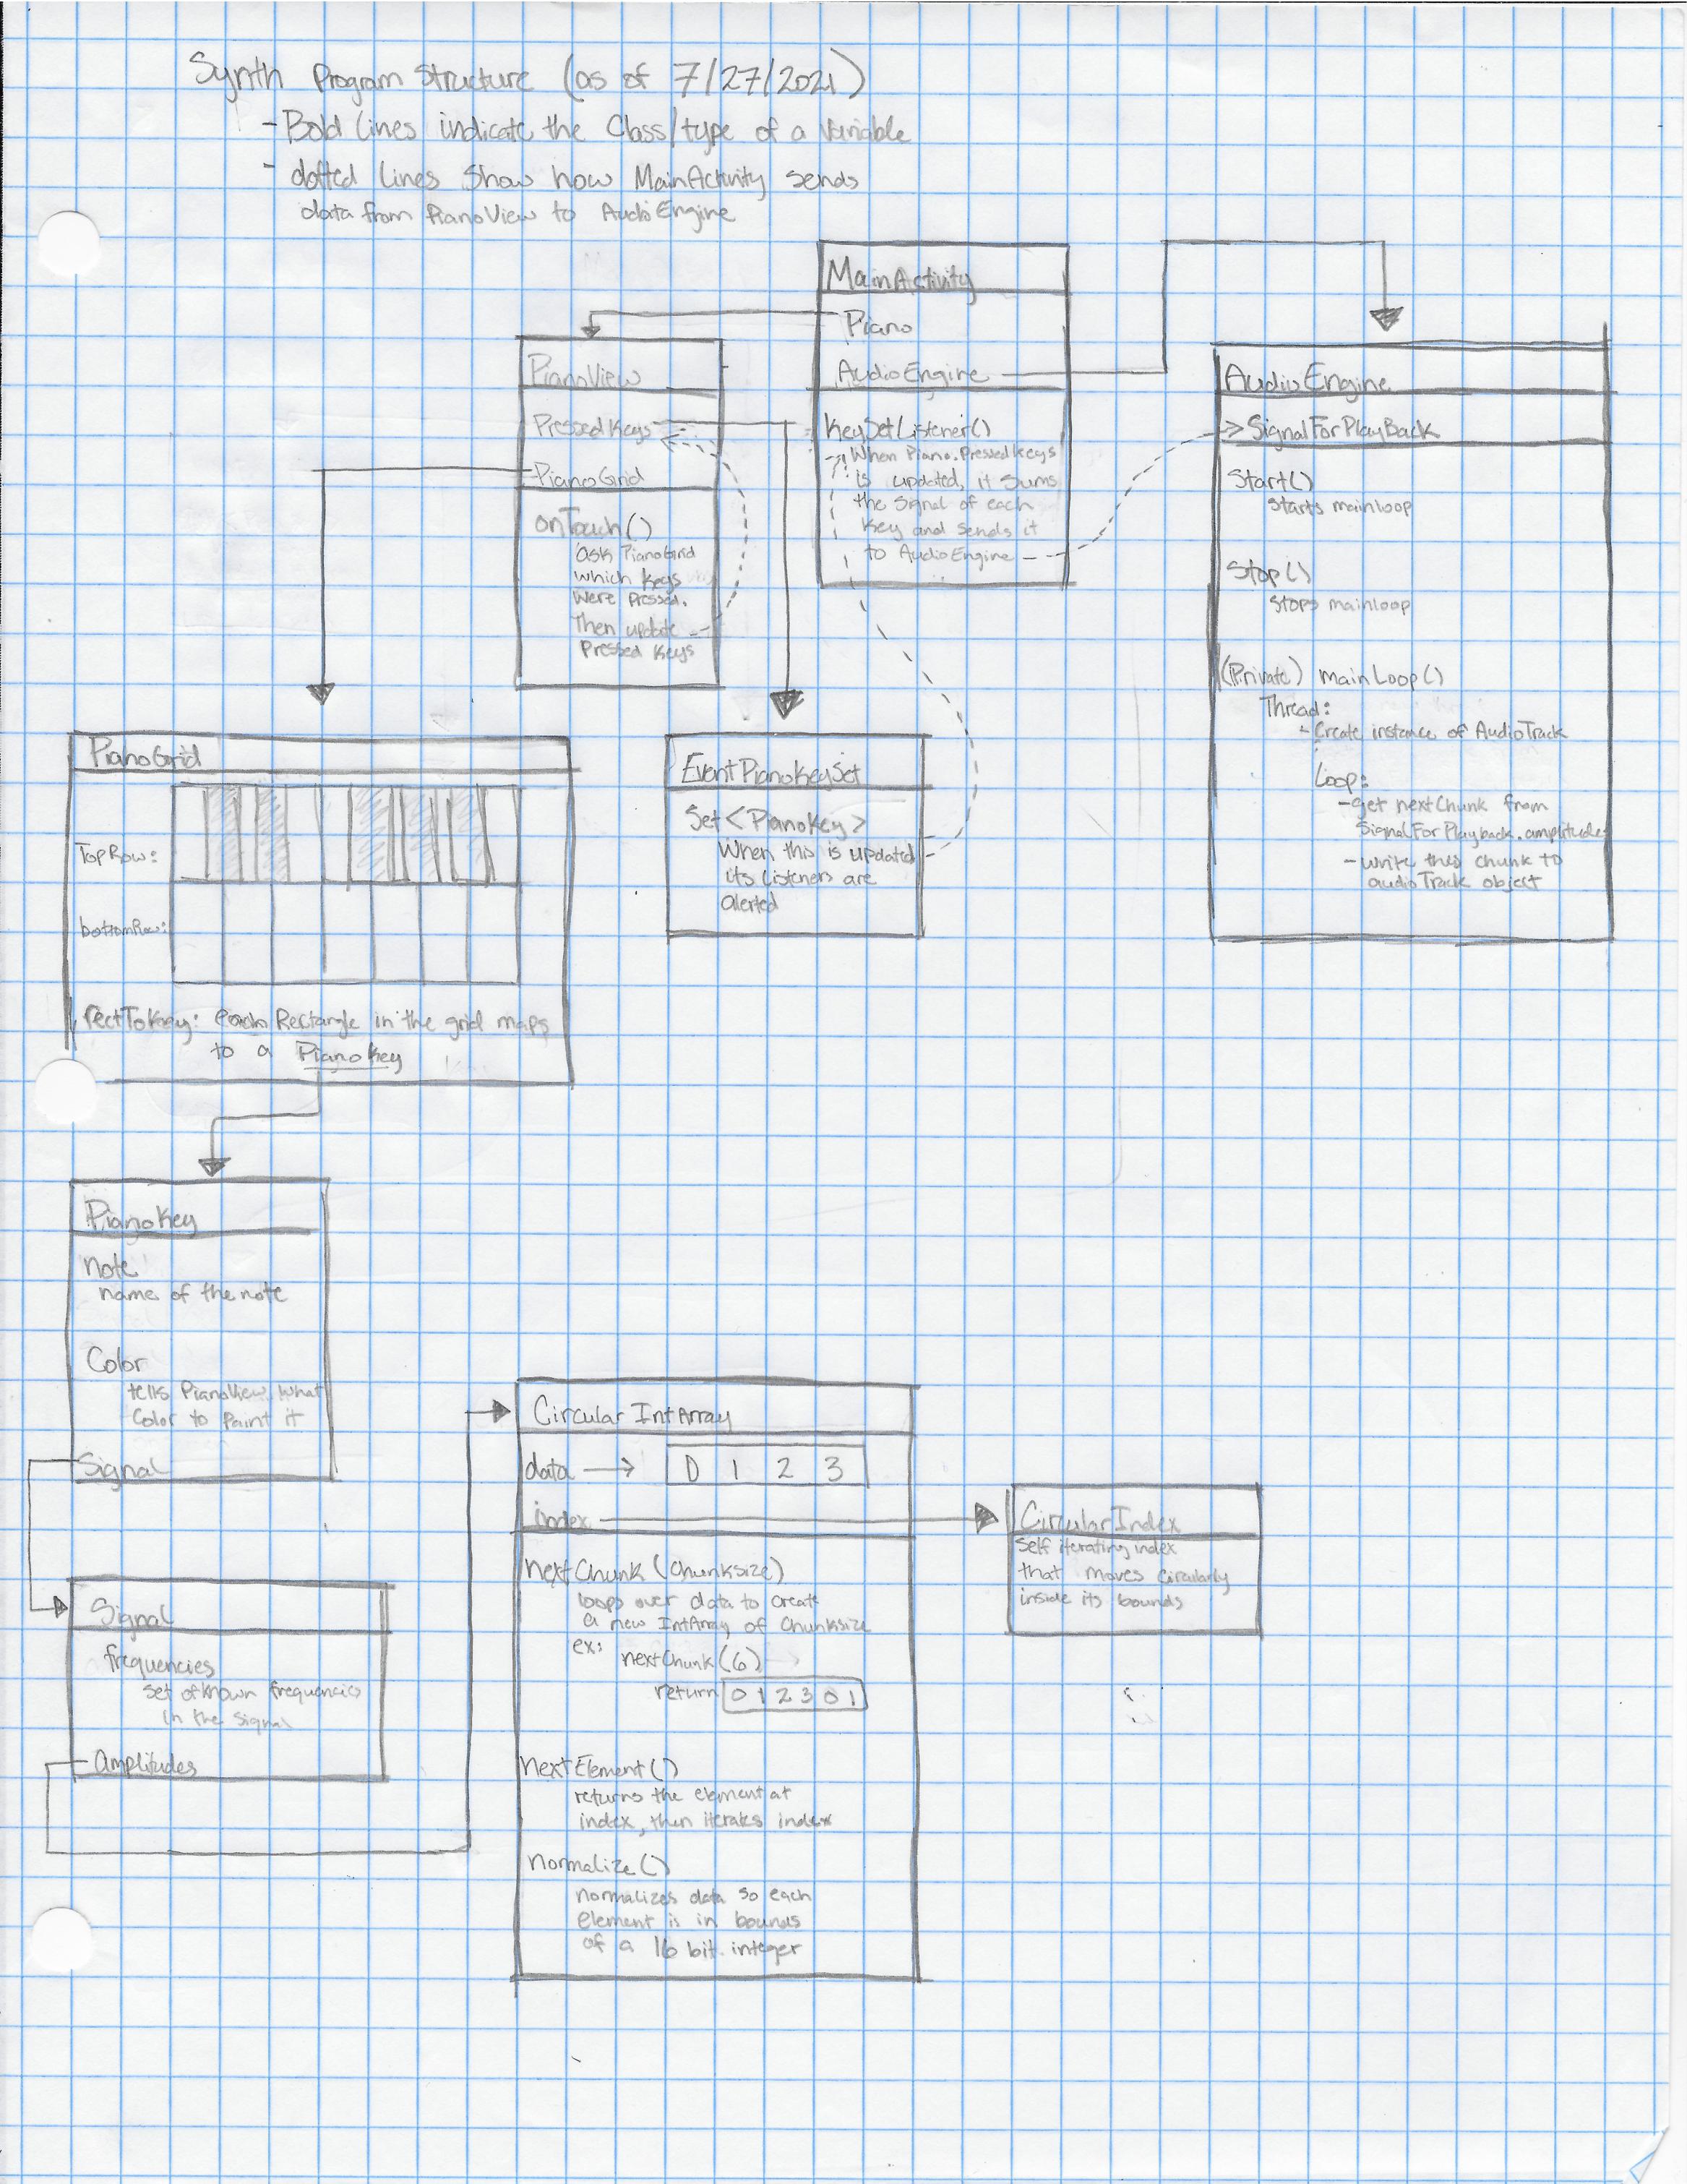 Synth Program Structure (as of 7/27/2021)
- Bold lines indicate the Class/type of a variable
- dotted lines show how MainActivity sends
data from PianoView to AudioEngine
MainActivity
Piano
AudioEngine
KeySetListener()
When Piano.PressedKeys
is updated, it sums
the signal of each
key and sends it
to AudioEngine
PianoView
PressedKeys
PianoGrid
onTouch()
ask PianoGrid
which keys
were pressed.
Then update
Pressed Keys
AudioEngine
SignalForPlayBack
Start()
Starts mainloop
Stop()
Stops mainloop
(Private) mainLoop()
Thread:
- Create instance of AudioTrack
Loop:
- get nextChunk from
SignalForPlayback.amplitudes
- write this chunk to
audioTrack object
PianoGrid
TopRow:
bottomRow:
rectToKey: each Rectangle in the grid maps
to a PianoKey
EventPianoKeySet
Set<PianoKey>
When this is updated
its listeners are
alerted
PianoKey
note
name of the note
Color
tells PianoView what
Color to paint it
Signal
Signal
frequencies
set of known frequencies
in the signal
amplitudes
CircularIntArray
data → 0 1 2 3
index
nextChunk (Chunksize)
loops over data to create
a new IntArray of Chunksize
ex: nextChunk(6)
return 0 1 2 3 0 1
nextElement()
returns the element at
index, then iterates index
normalize()
normalizes data so each
element is in bounds
of a 16 bit integer
CircularIndex
Self iterating index
that moves circularly
inside its bounds